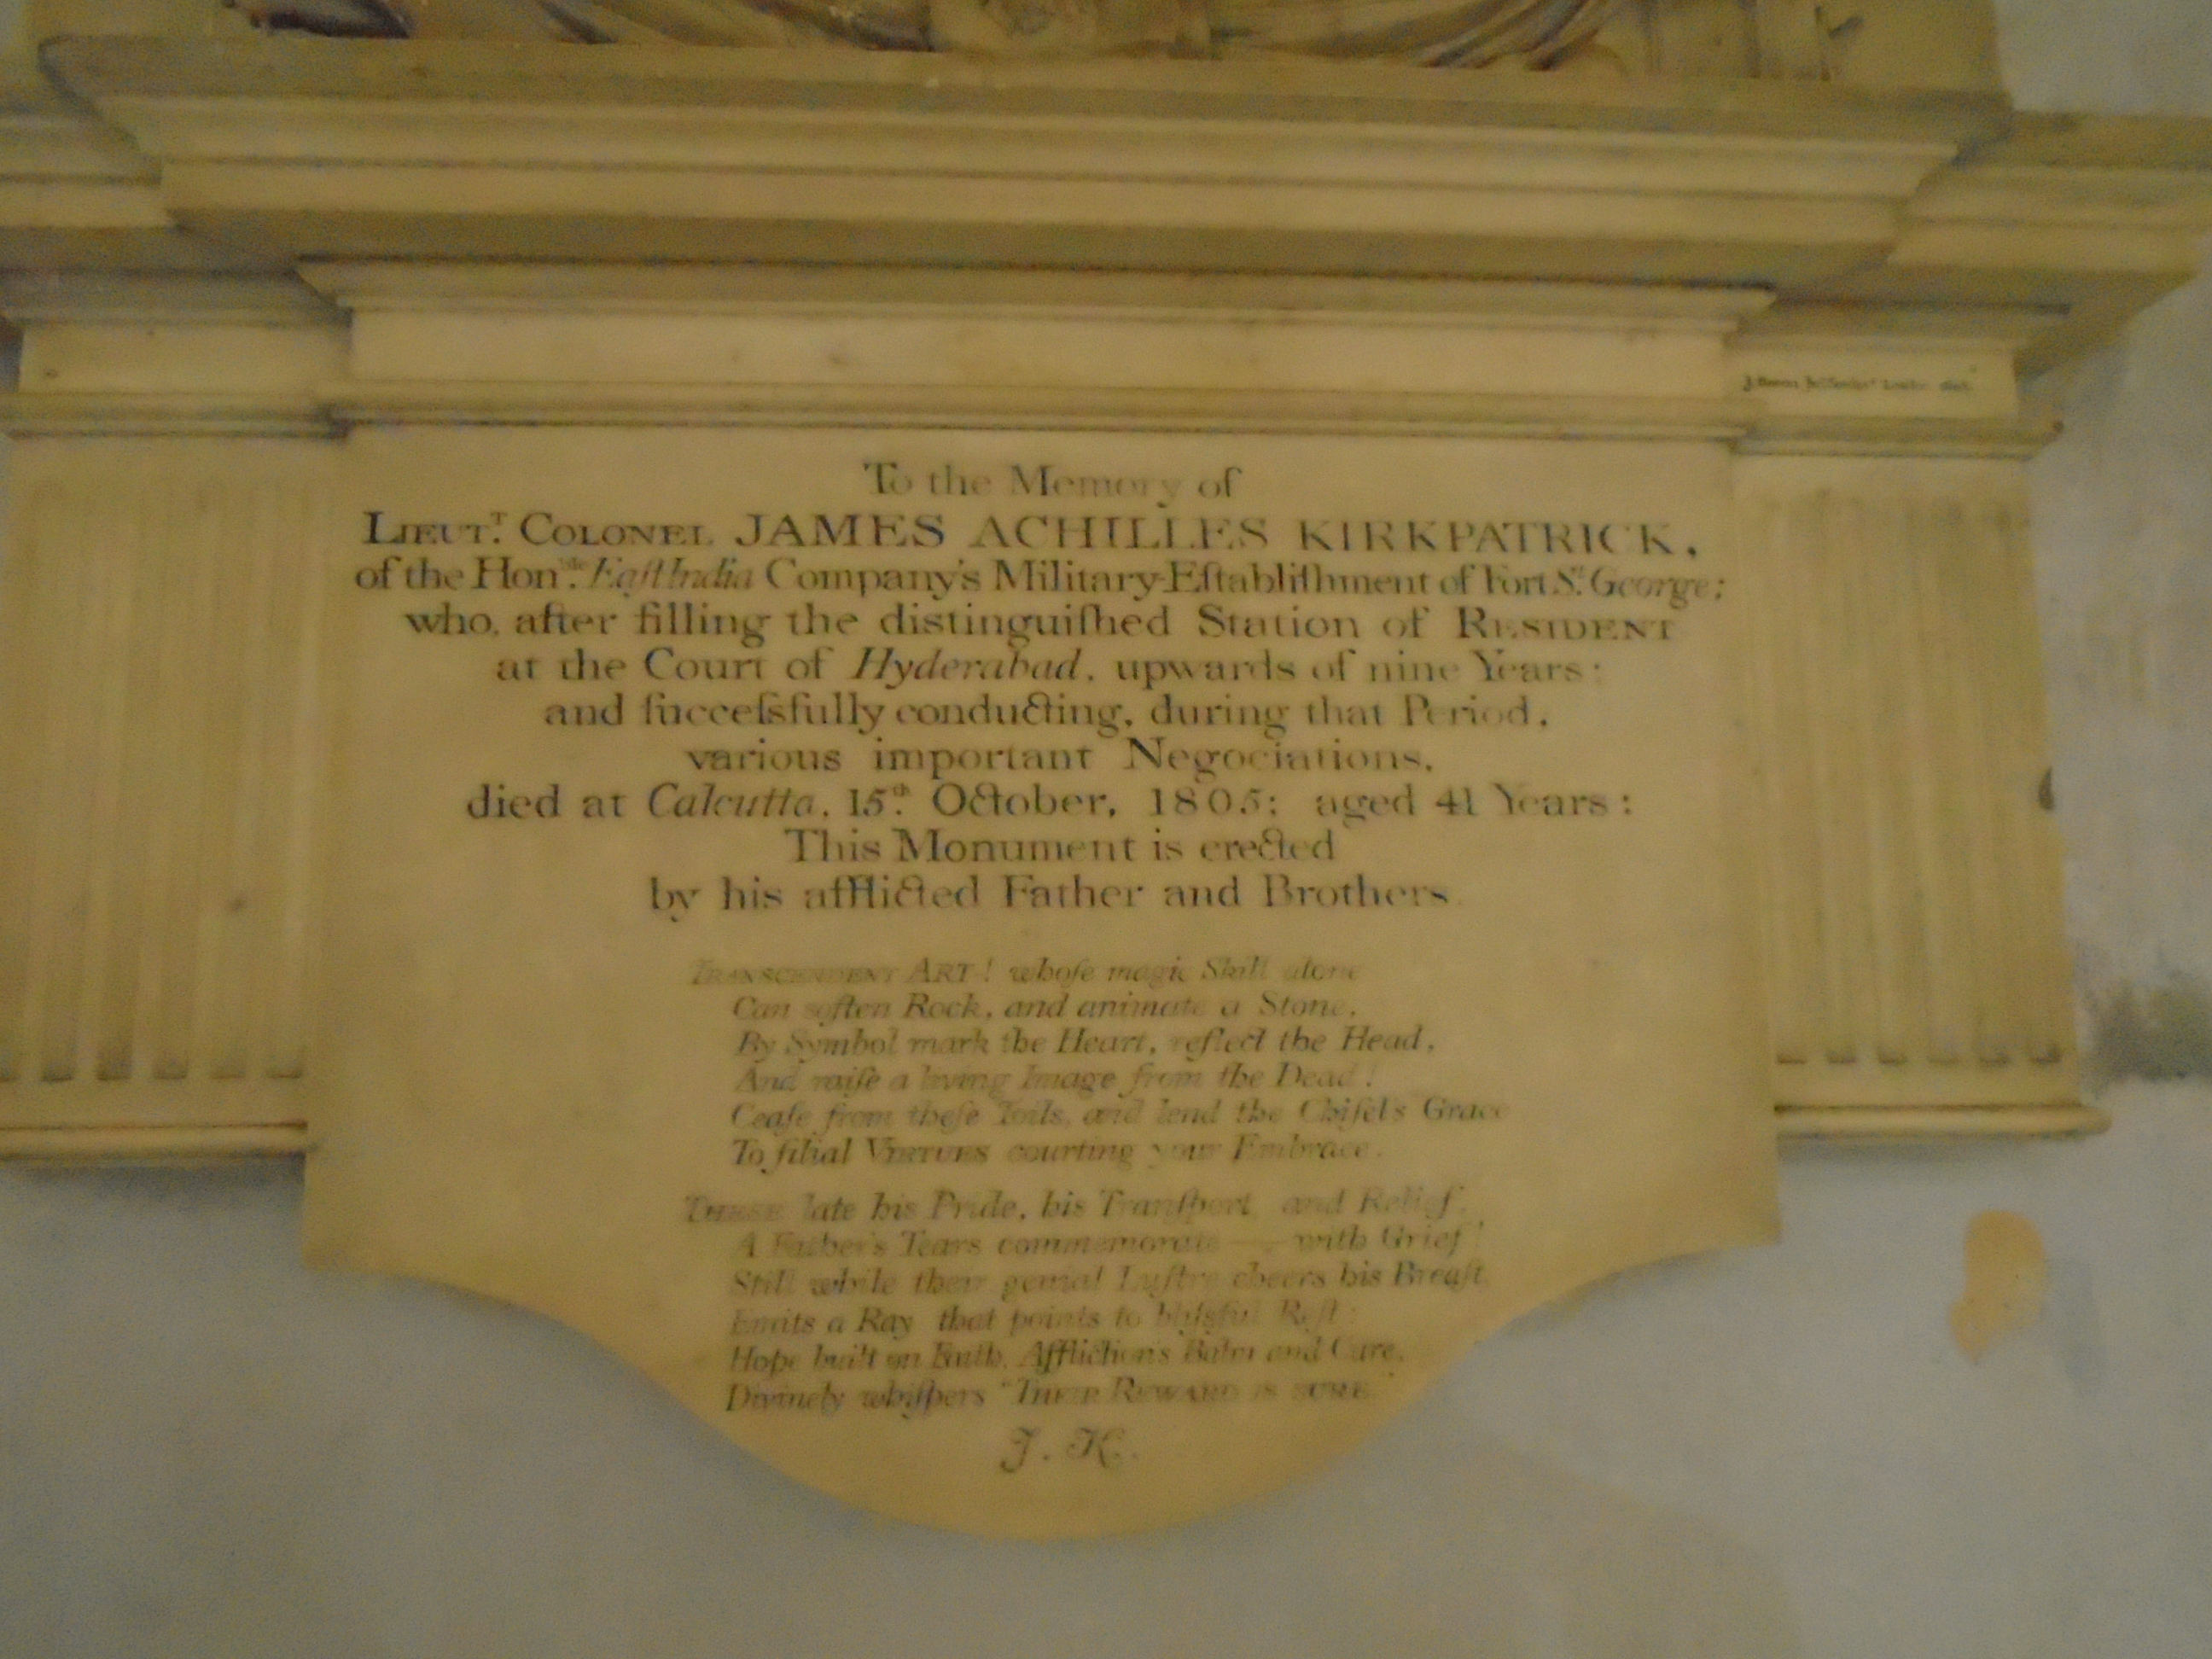 To the Memory of
LIEUT.T COLONEL JAMES ACHILLES KIRKPATRICK,
of the Hon.ble Eaſt India Company's Military Eſtabliſhment of Fort S.t George;
who, after filling the distinguiſhed Station of RESIDENT
at the Court of Hyderabad, upwards of nine Years;
and ſucceſsfully conducting, during that Period,
various important Negociations,
died at Calcutta, 15.th October, 1805; aged 41 Years:
This Monument is erected
by his afflicted Father and Brothers.
TRANSCENDENT ART! whoſe magic Skill alone
Can soften Rock, and animate a Stone,
By Symbol mark the Heart, reflect the Head,
And raiſe a living Image from the Dead!
Ceaſe from theſe Toils, and lend the Chiſel's Grace
To filial VIRTUES courting your Embrace.
THESE late his Pride, his Tranſport and Relief,
A Father's Tears commemorate — with Grief!
Still while their genial Luſtre cheers his Breaſt
Emits a Ray that points to bliſsful Reſt:
Hope built on Faith, Affliction's Balm and Cure,
Divinely whiſpers "THEIR REWARD IS SURE"
J. K.